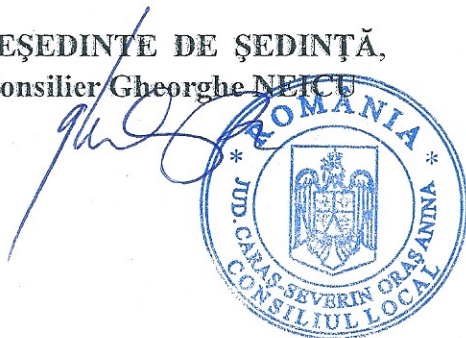 EȘEDINTE DE ȘEDINȚĂ,
onsilier Gheorghe NEICU
ROMÂNIA
* JUD. CARAȘ-SEVERIN ORAȘ ANINA *
CONSILIUL LOCAL